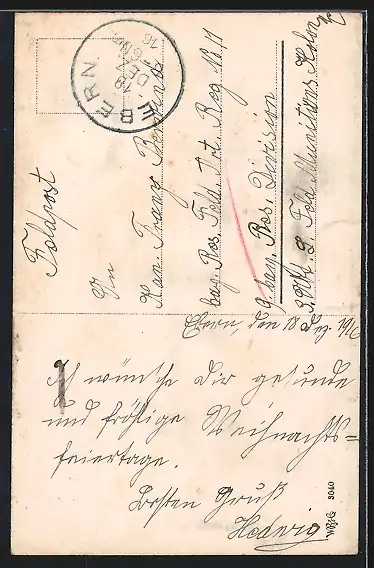 EBERN
18 DEZ
Feldpost
An
Kan. Franz
bay. Res. Feld. Art. Reg. No 11
9. bay. Res. Division
3. Abt. 9 Feld Munitions Kolon
Ebern, den 18 Dez. 1916
Ich wünsche Dir gesunde
und fröhlige Weihnachts=
feiertage.
Besten Gruß
Hedwig
W.B.&.G. 3040